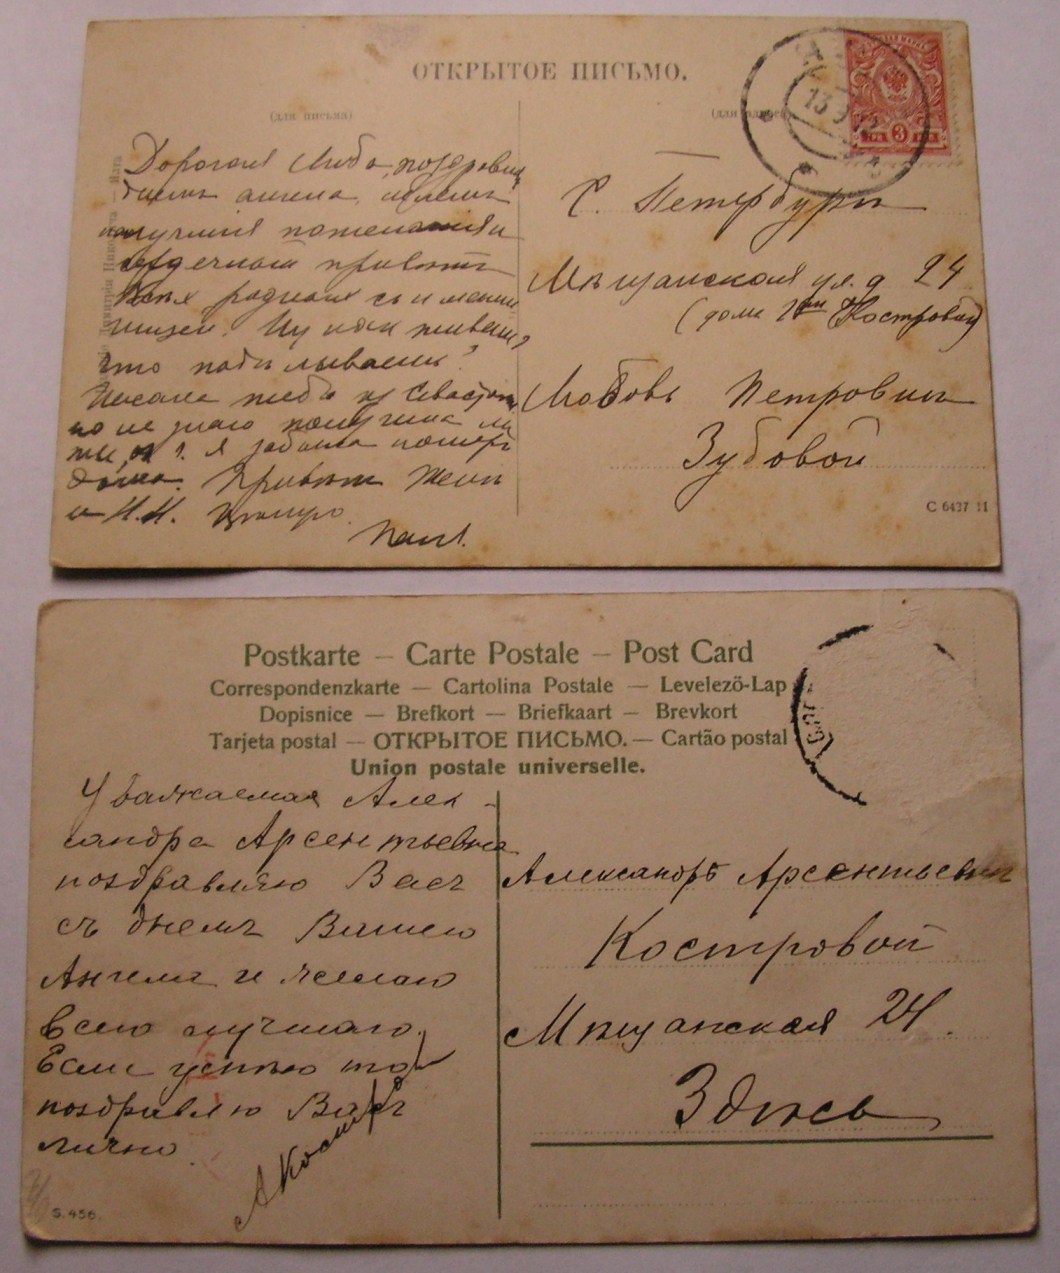 ОТКРЫТОЕ ПИСЬМО.
(для письма)
Дорогая Люба, поздравл
днемъ ангела
наилучшія пожеланія и
сердечный привѣтъ
родныхъ съ имени
Ну какъ живешь?
что подѣлываешь?
Писала тебѣ изъ Севастоп
но не знаю получила ли
ты, я забыла номеръ
дома. Привѣтъ Жени
и Н.Н. Цѣлую.
13
3
С. Петербургъ
Мѣщанская ул. д 24
(домъ Костровой)
Любовь Петровнѣ
Зубовой
С 6437 11
Postkarte — Carte Postale — Post Card
Correspondenzkarte — Cartolina Postale — Levelező-Lap
Dopisnice — Brefkort — Briefkaart — Brevkort
Tarjeta postal — ОТКРЫТОЕ ПИСЬМО. — Cartão postal
Union postale universelle.
Уважаемая Алек-
сандра Арсентьевна
поздравляю Васъ
съ днемъ Вашего
Ангела и желаю
всего лучшаго.
Если успѣю то
поздравлю Васъ
лично.
А Костр
S. 456.
Александрѣ Арсентьевнѣ
Костровой
Мѣщанская 24.
Здѣсь